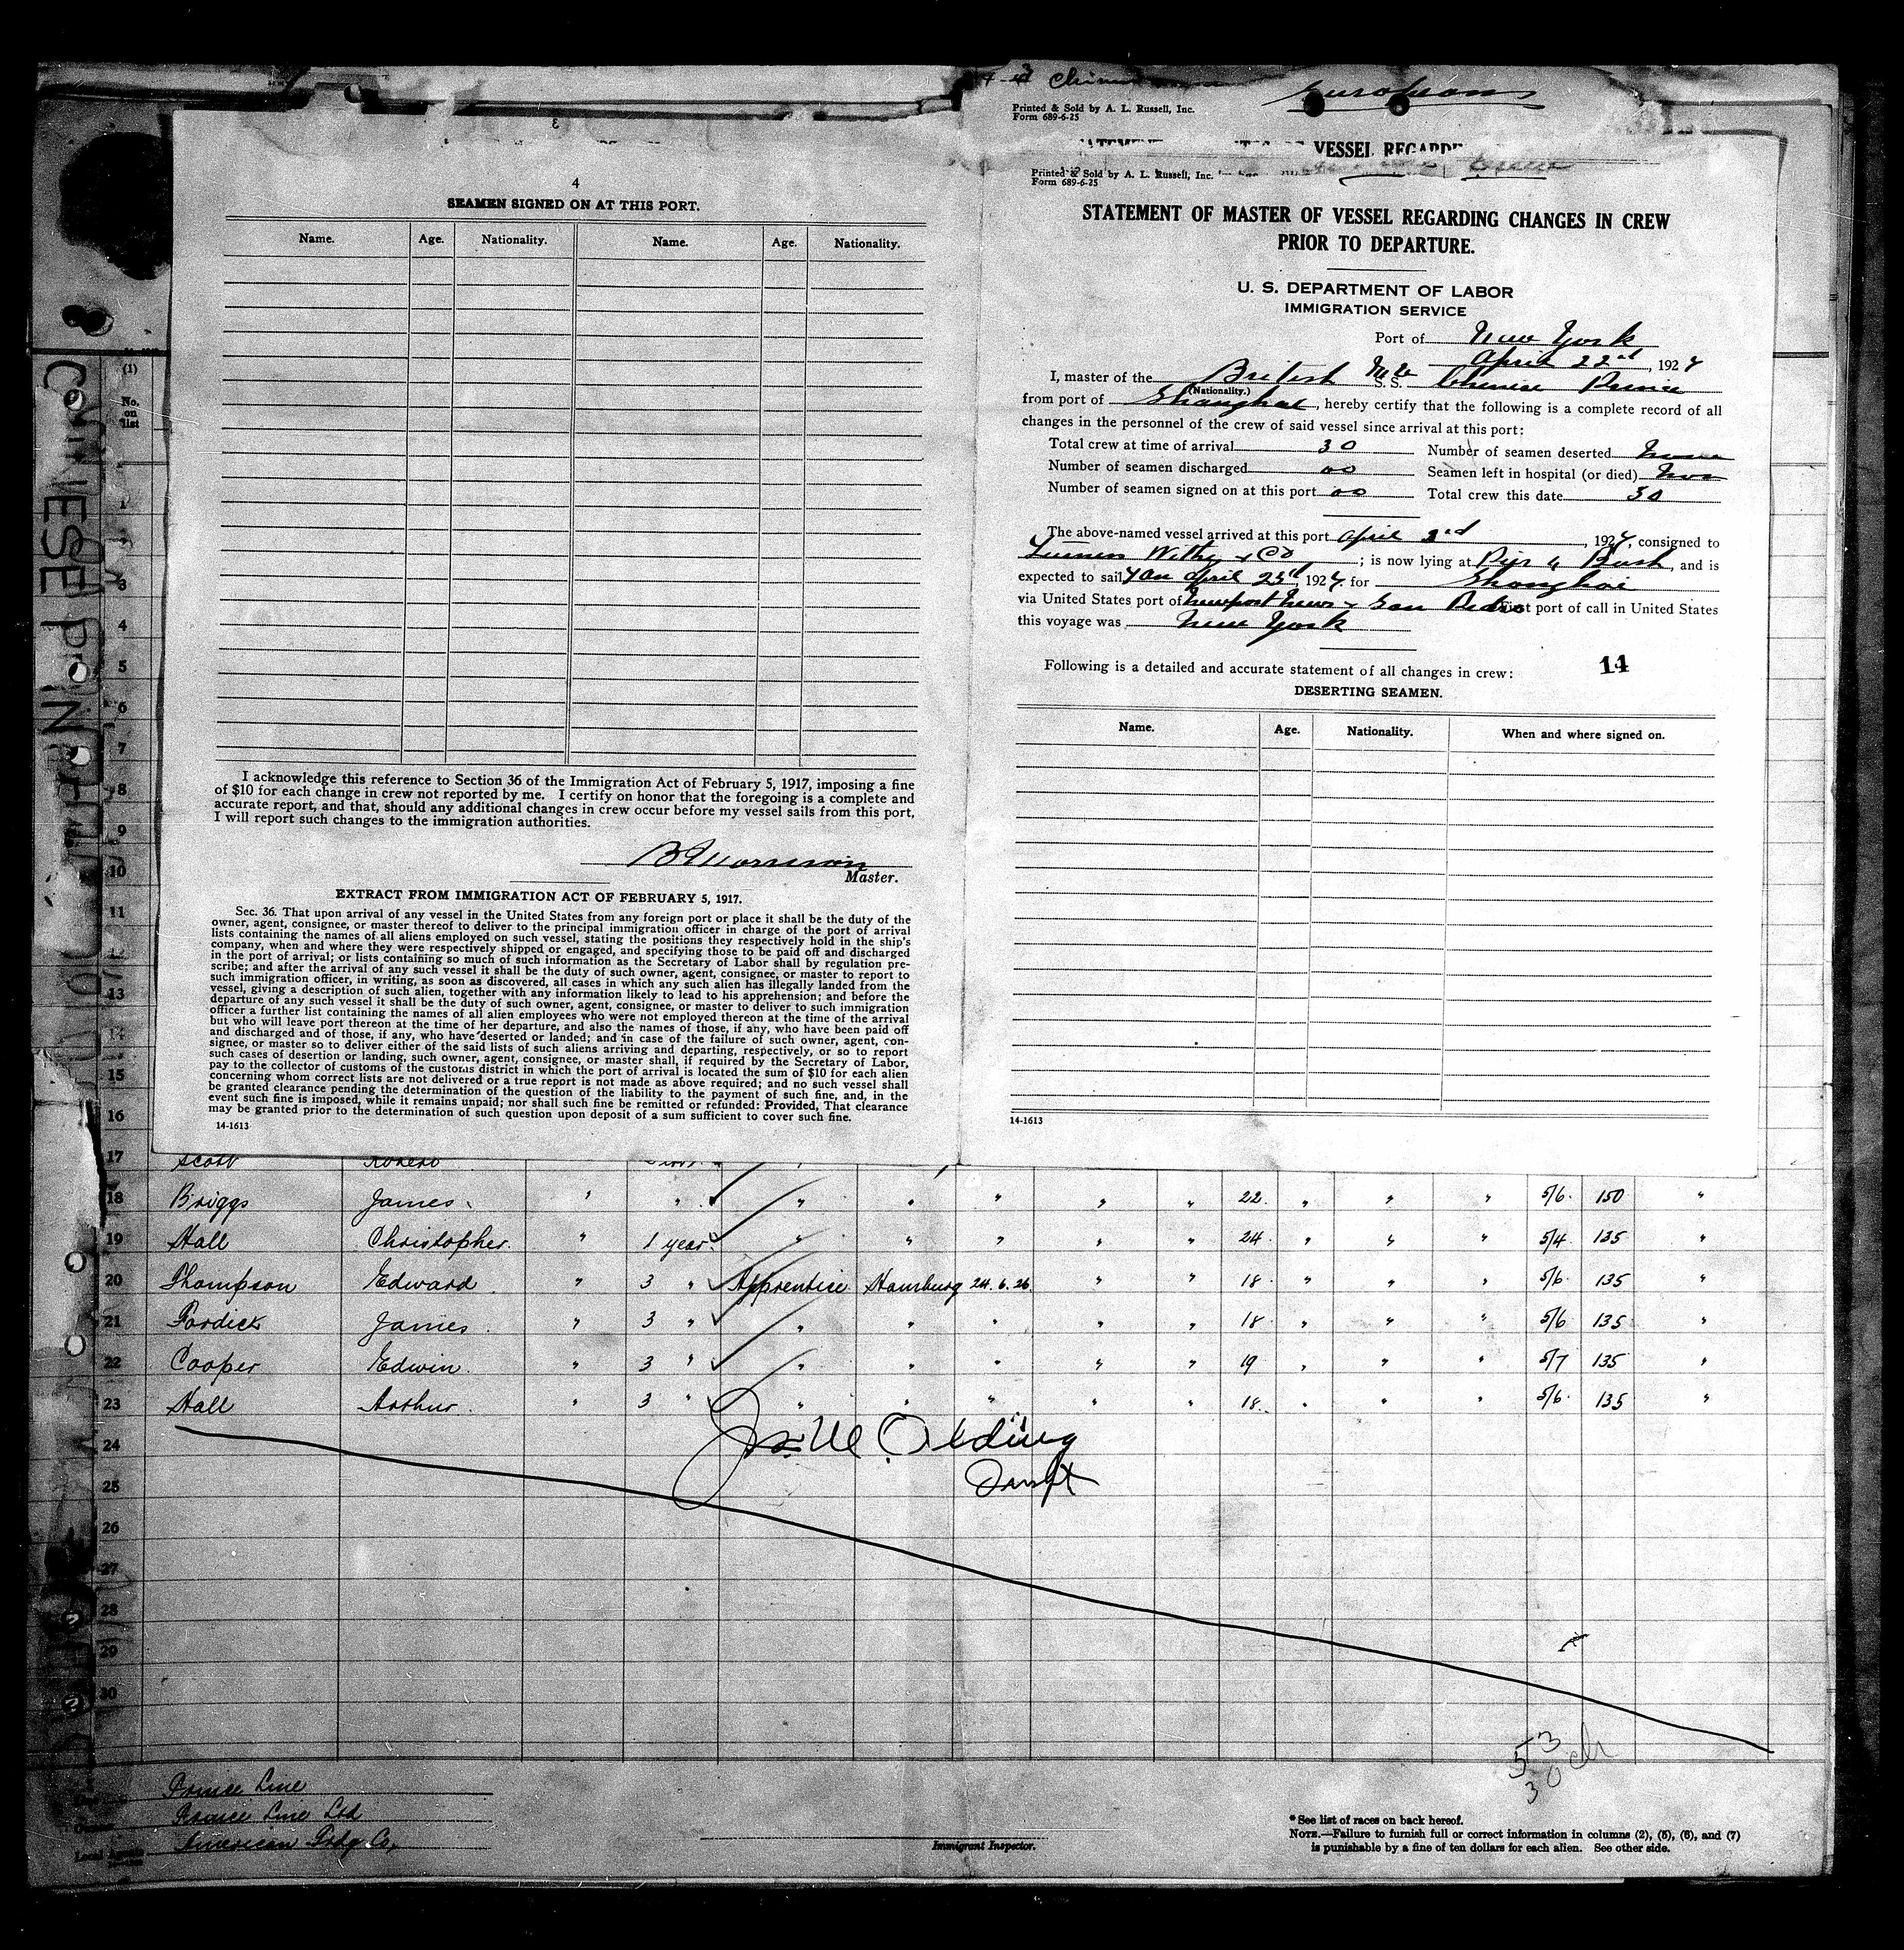 4
SEAMEN SIGNED ON AT THIS PORT.
Name. Age. Nationality. Name. Age. Nationality.
I acknowledge this reference to Section 36 of the Immigration Act of February 5, 1917, imposing a fine
of $10 for each change in crew not reported by me. I certify on honor that the foregoing is a complete and
accurate report, and that, should any additional changes in crew occur before my vessel sails from this port,
I will report such changes to the immigration authorities.
Morrison
Master.
EXTRACT FROM IMMIGRATION ACT OF FEBRUARY 5, 1917.
Sec. 36. That upon arrival of any vessel in the United States from any foreign port or place it shall be the duty of the
owner, agent, consignee, or master thereof to deliver to the principal immigration officer in charge of the port of arrival
lists containing the names of all aliens employed on such vessel, stating the positions they respectively hold in the ship's
company, when and where they were respectively shipped or engaged, and specifying those to be paid off and discharged
in the port of arrival; or lists containing so much of such information as the Secretary of Labor shall by regulation pre-
scribe; and after the arrival of any such vessel it shall be the duty of such owner, agent, consignee, or master to report to
such immigration officer, in writing, as soon as discovered, all cases in which any such alien has illegally landed from the
vessel, giving a description of such alien, together with any information likely to lead to his apprehension; and before the
departure of any such vessel it shall be the duty of such owner, agent, consignee, or master to deliver to such immigration
officer a further list containing the names of all alien employees who were not employed thereon at the time of the arrival
but who will leave port thereon at the time of her departure, and also the names of those, if any, who have been paid off
and discharged and of those, if any, who have deserted or landed; and in case of the failure of such owner, agent, con-
signee, or master so to deliver either of the said lists of such aliens arriving and departing, respectively, or so to report
such cases of desertion or landing, such owner, agent, consignee, or master shall, if required by the Secretary of Labor,
pay to the collector of customs of the customs district in which the port of arrival is located the sum of $10 for each alien
concerning whom correct lists are not delivered or a true report is not made as above required; and no such vessel shall
be granted clearance pending the determination of the question of the liability to the payment of such fine, and, in the
event such fine is imposed, while it remains unpaid; nor shall such fine be remitted or refunded: Provided, That clearance
may be granted prior to the determination of such question upon deposit of a sum sufficient to cover such fine.
14-1613
Europeans
Printed & Sold by A. L. Russell, Inc.
Form 689-6-25
VESSEL REGARD
Printed & Sold by A. L. Russell, Inc.
Form 689-6-25
STATEMENT OF MASTER OF VESSEL REGARDING CHANGES IN CREW
PRIOR TO DEPARTURE.
U. S. DEPARTMENT OF LABOR
IMMIGRATION SERVICE
Port of New York
April 22nd, 1927
I, master of the British S. S. Chinese Prince
(Nationality.)
from port of Shanghai, hereby certify that the following is a complete record of all
changes in the personnel of the crew of said vessel since arrival at this port:
Total crew at time of arrival 30 Number of seamen deserted none
Number of seamen discharged 00 Seamen left in hospital (or died)
Number of seamen signed on at this port 00 Total crew this date 30
The above-named vessel arrived at this port April , 1927, consigned to
Furness Withy & Co; is now lying at Bush, and is
expected to sail on April 23rd, 1927 for Shanghai
via United States port of Newport News & San Pedro First port of call in United States
this voyage was New York
Following is a detailed and accurate statement of all changes in crew: 14
DESERTING SEAMEN.
Name. Age. Nationality. When and where signed on.
14-1613
CHINESE PRINCE
(1)
No.
on
list
1
2
3
4
5
6
7
8
9
10
11
12
13
14
15
16
17 Scott Robert
18 Briggs James. " " " " " " " 22 " " " 5/6 150 "
19 Hall Christopher. " 1 year " " " " " 24 " " " 5/4 135 "
20 Thompson Edward " 3 " Apprentice Hamburg 24.6.26. " " 18 " " " 5/6 135 "
21 Fordick James. " 3 " " " " " " 18 " " " 5/6 135 "
22 Cooper Edwin. " 3 " " " " " " 19 " " " 5/7 135 "
23 Hall Arthur. " 3 " " " " " " 18 " " " 5/6 135 "
24
25
26
27
28
29
30
53
30 ch
Prince Line
Prince Line Ltd
Owners
American Co.
Local Agents
Immigrant Inspector.
*See list of races on back hereof.
NOTE.—Failure to furnish full or correct information in columns (2), (5), (6), and (7)
is punishable by a fine of ten dollars for each alien. See other side.